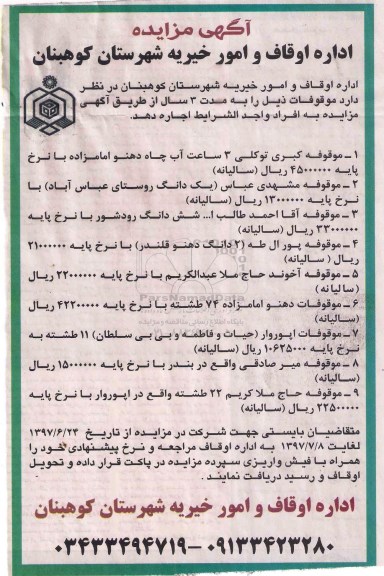 آگهی مزایده
اداره اوقاف و امور خیریه شهرستان کوهبنان
اداره اوقاف و امور خیریه شهرستان کوهبنان در نظر
دارد موقوفات ذیل را به مدت ۳ سال از طریق آگهی
مزایده به افراد واجد الشرایط اجاره دهد.
۱ ـ موقوفه کبری توکلی ۳ ساعت آب چاه دهنو امامزاده با نرخ
پایه ۴۵۰۰۰۰۰ ریال (سالیانه)
۲ ـ موقوفه مشهدی عباس (یک دانگ روستای عباس آباد) با
نرخ پایه ۱۳۰۰۰۰۰۰ ریال (سالیانه)
۳ ـ موقوفه آقا احمد طالب ا... شش دانگ رودشور با نرخ پایه
۳۳۰۰۰۰۰۰ ریال (سالیانه)
۴ ـ موقوفه پور ال طه (۲ دانگ دهنو قلندر) با نرخ پایه ۲۱۰۰۰۰۰۰
ریال ( سالیانه)
۵ ـ موقوفه آخوند حاج ملا عبدالکریم با نرخ پایه ۲۲۰۰۰۰۰۰ ریال
(سالیانه)
۶ ـ موقوفات دهنو امامزاده ۷۴ طشته با نرخ پایه ۴۲۲۰۰۰۰۰ ریال
(سالیانه)
۷ ـ موقوفات اپوروار (حیات و فاطمه و بی بی سلطان) ۱۱ طشته به
نرخ پایه ۱۰۶۲۵۰۰۰ ریال (سالیانه)
۸ ـ موقوفه میر صادقی واقع در بندر با نرخ پایه ۱۵۰۰۰۰۰ ریال
(سالیانه)
۹ ـ موقوفه حاج ملا کریم ۲۲ طشته واقع در اپوروار با نرخ پایه
۲۲۵۰۰۰۰۰ ریال (سالیانه)
متقاضیان بایستی جهت شرکت در مزایده از تاریخ ۱۳۹۷/۶/۲۴
لغایت ۱۳۹۷/۷/۸ به اداره اوقاف مراجعه و نرخ پیشنهادی خود را
همراه با فیش واریزی سپرده مزایده در پاکت قرار داده و تحویل
اوقاف و رسید دریافت نمایند .
اداره اوقاف و امور خیریه شهرستان کوهبنان
۰۳۴۳۳۴۹۴۷۱۹-۰۹۱۳۳۴۲۳۲۸۰